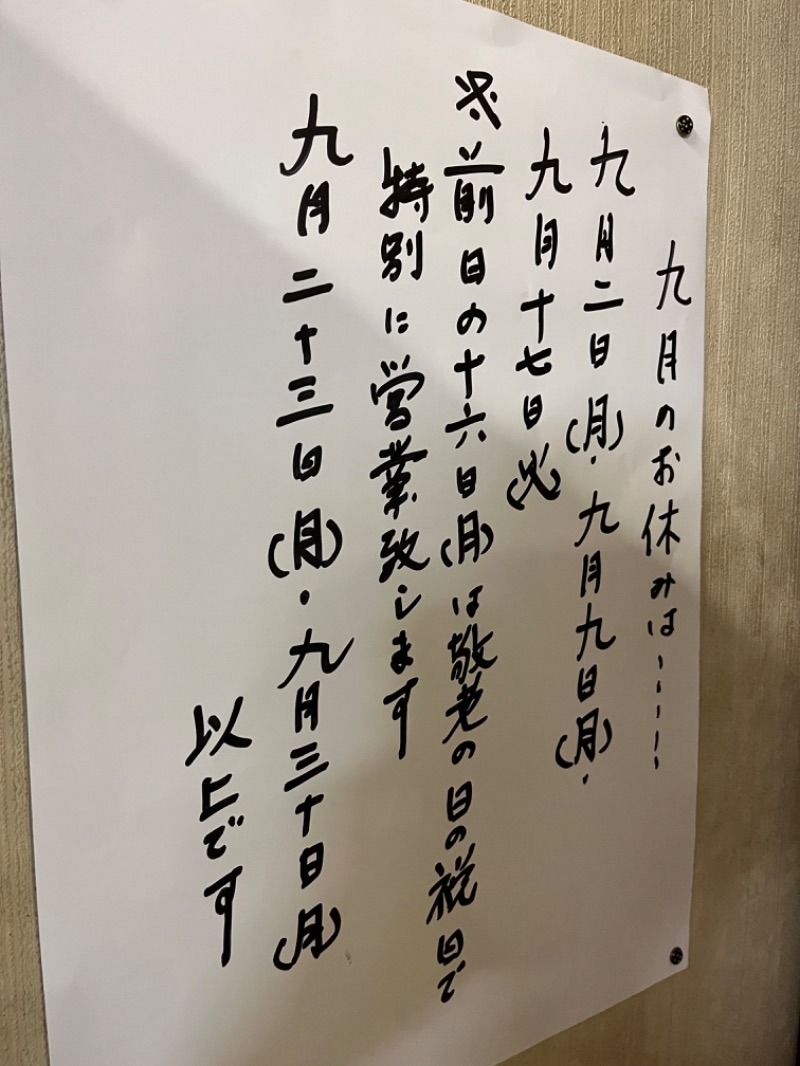 九月のお休みは……
九月二日(月)・九月九日(月)・
九月十七日(火)
※前日の十六日(月)は敬老の日の祝日で
特別に営業致します
九月二十三日(月)・九月三十日(月)
以上です